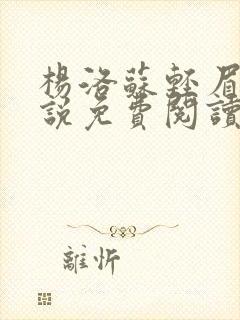 楊洛蘇輕眉
說免費閱讀
離忻